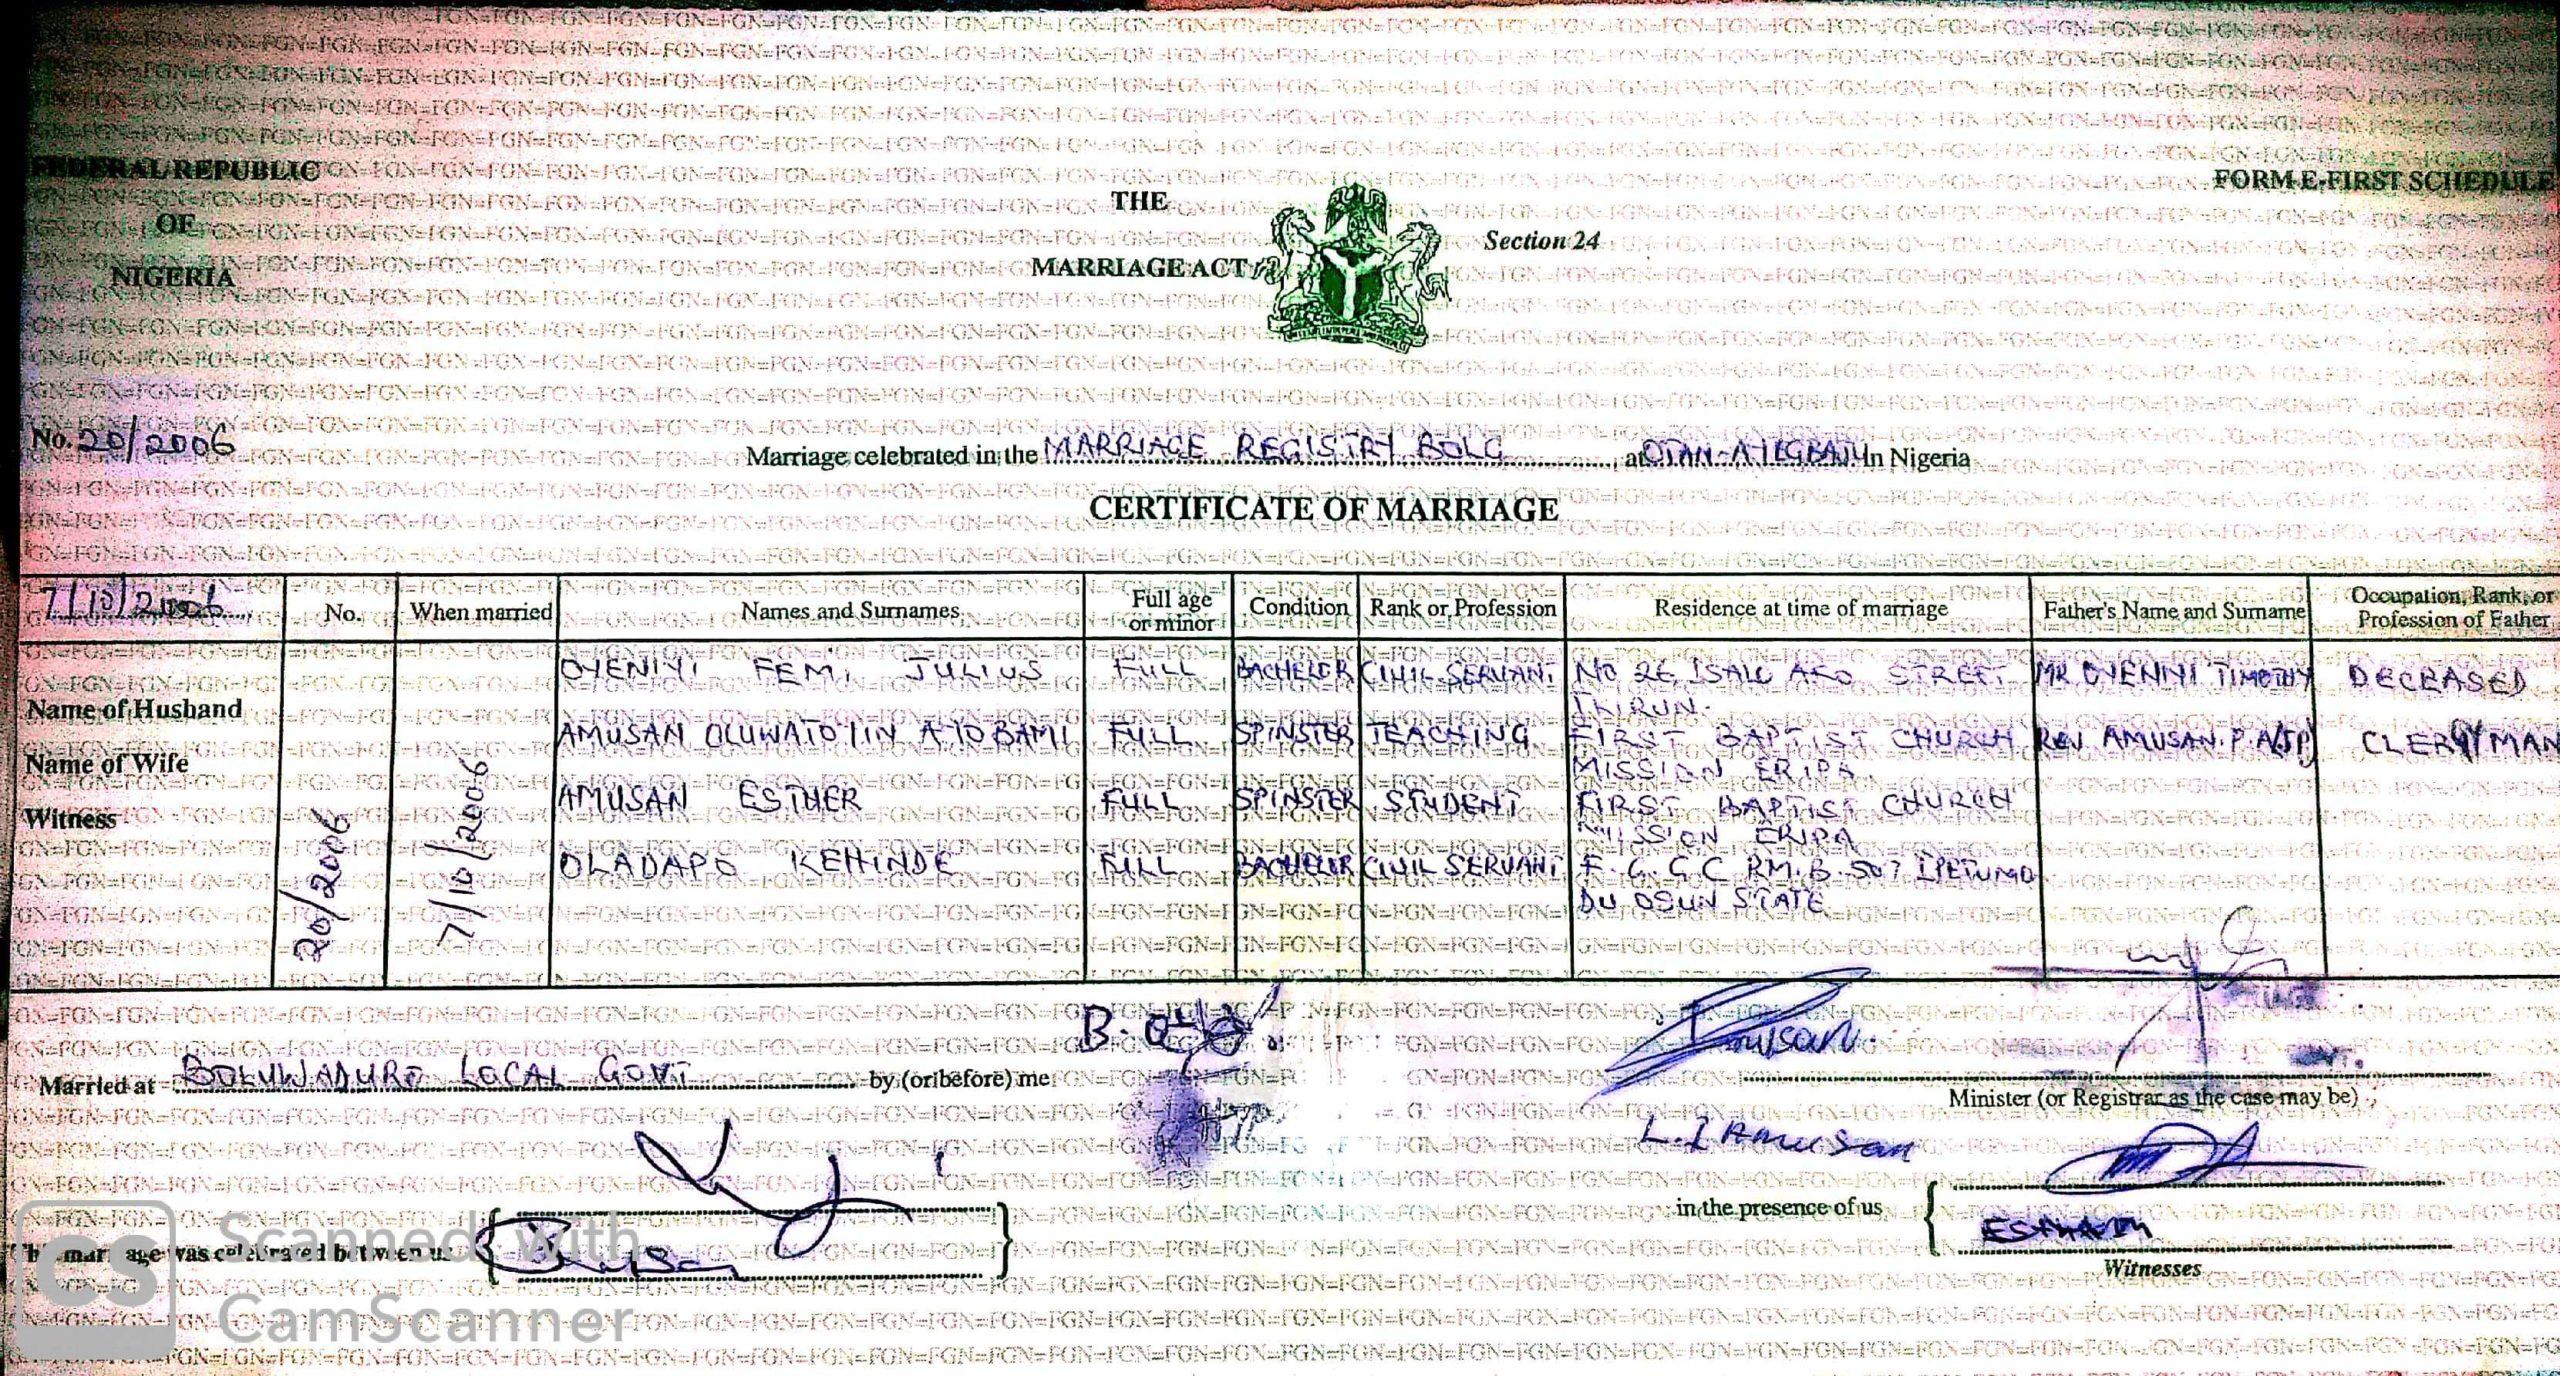 FEDERAL REPUBLIC
OF
NIGERIA
THE
MARRIAGE ACT
Section 24
FORM E-FIRST SCHEDULE
No. 20/2006
Marriage celebrated in the MARRIAGE REGISTRY BOLG, at OTAN-AYEGBAJU In Nigeria
CERTIFICATE OF MARRIAGE
7/10/2006 No. When married Names and Surnames Full age or minor Condition Rank or Profession Residence at time of marriage Father's Name and Surname Occupation, Rank, or Profession of Father
Name of Husband OYENIYI FEMI JULIUS FULL BACHELOR CIVIL SERVANT No 26 ISALE ARO STREET MR OYENIYI TIMOTHY DECEASED
IKIRUN.
Name of Wife AMUSAN OLUWATOYIN AYOBAMI FULL SPINSTER TEACHING FIRST BAPTIST CHURCH REV AMUSAN. P. A (JP) CLERGYMAN
MISSION ERIPA
Witness AMUSAN ESTHER FULL SPINSTER STUDENT FIRST BAPTIST CHURCH
MISSION ERIPA
OLADAPO KEHINDE FULL BACHELOR CIVIL SERVANT F.G.G.C P.M.B. 507 IPETUMODU OSUN STATE
20/2006
7/10/2006
Married at BOLUWADURO LOCAL GOVT by (or before) me
Minister (or Registrar as the case may be)
L. I Amusan
The marriage was celebrated between us
in the presence of us
Witnesses
CS Scanned with
CamScanner